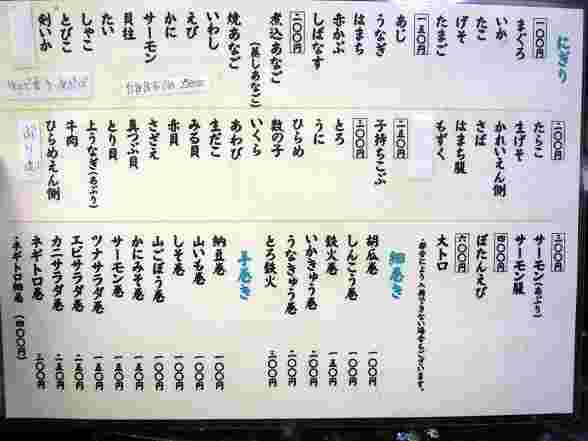 にぎり
一〇〇円
まぐろ
いか
たこ
げそ
たまご
一五〇円
あじ
うなぎ
はまち
赤かぶ
しばなす
二〇〇円
煮込あなご
(蒸しあなご)
焼あなご
いわし
えび
かに
サーモン
貝柱
たい
しゃこ
とびこ
剣いか
二〇〇円
たらこ
生げそ
かれいえん側
さば
はまち腹
もずく
二五〇円
子持ちこぶ
三〇〇円
とろ
うに
ひらめ
数の子
いくら
あわび
生だこ
みる貝
赤貝
さざえ
真つぶ貝
とり貝
上うなぎ(あぶり)
牛肉
ひらめえん側
三〇〇円
サーモン(あぶり)
サーモン腹
四〇〇円
ぼたんえび
六〇〇円
大トロ
細巻き
胡瓜巻 一〇〇円
しんこう巻 一〇〇円
鉄火巻 一五〇円
いかきゅう巻 二〇〇円
うなきゅう巻 二〇〇円
とろ鉄火 三〇〇円
手巻き
納豆巻 一〇〇円
山いも巻 一〇〇円
しそ巻 一〇〇円
山ごぼう巻 一〇〇円
かにみそ巻 一五〇円
サーモン巻 一五〇円
ツナサラダ巻 一五〇円
エビサラダ巻 二五〇円
カニサラダ巻 二五〇円
ネギトロ巻 三〇〇円
・ネギトロ細巻 (四〇〇円)